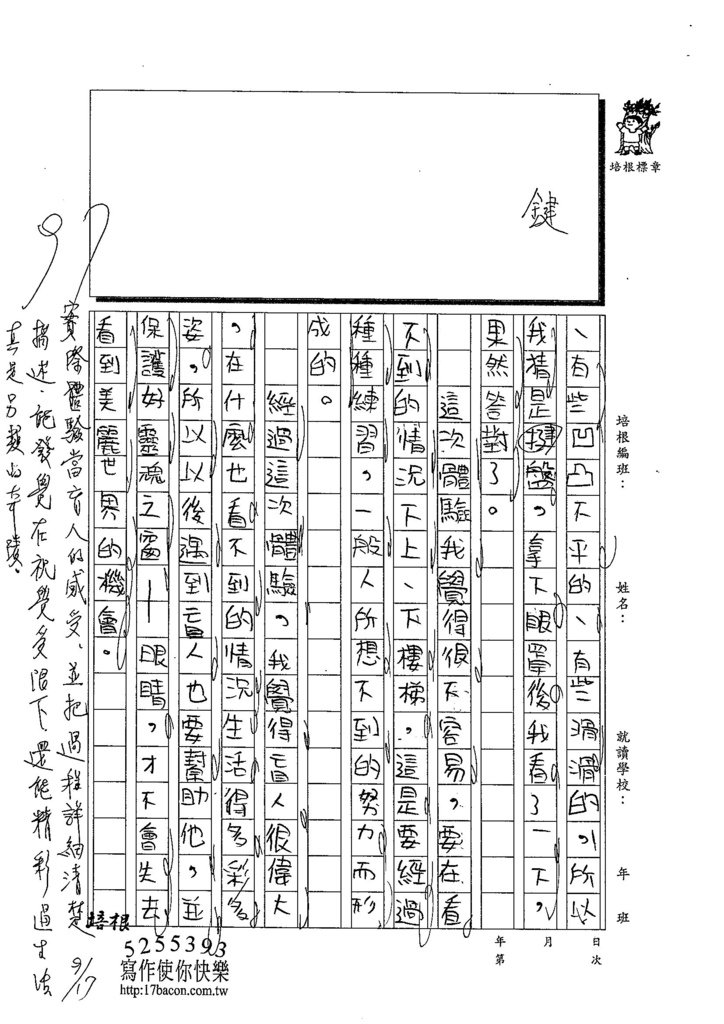 培根標章
鍵
培根編班：
姓名：
就讀學校：
年 班
日 次
月
年 第
、有些凹凸不平的、有些滑滑的，所以
我猜是鍵盤。拿下眼罩後我看了一下，
果然答對了。
這次體驗我覺得很不容易，要在看
不到的情況下上、下樓梯，這是要經過
種種練習，一般人所想不到的努力而形
成的。
經過這次體驗，我覺得盲人很偉大
，在什麼也看不到的情況生活得多彩多
姿。所以以後遇到盲人也要幫助他，並
保護好靈魂之窗—眼睛，才不會失去
看到美麗世界的機會。
97
實際體驗當盲人的感受，並把過程詳細清楚
描述，記發覺在視覺受限下，還能精彩過生活
真是另類的奔陵。
9/17
培根
5255393
寫作使你快樂
http:17bacon.com.tw